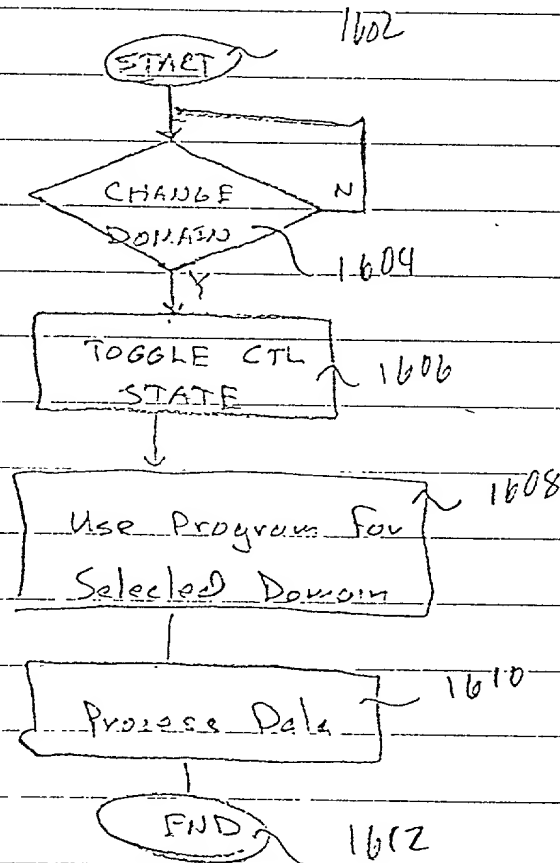 1602
START
CHANGE
N
DOMAIN
1604
Y
TOGGLE CTL
STATE
1606
1608
Use Program For
Selected Domain
1610
Process Data
END
1612